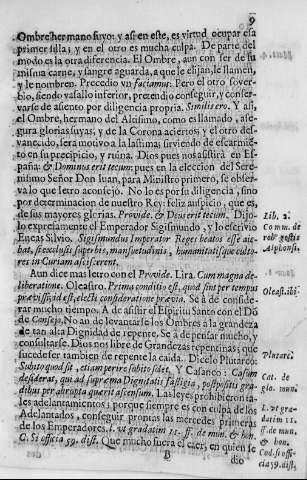 9
Ombre, hermano suyo: y asi en este, es virtud ocupar esa
primer silla; y en el otro es mucha culpa. De parte del
modo es la otra diferencia. El Ombre, aun con ser de su
misma carne, y sangre aguarda, a que le elijan, le llamen,
y le nombren. Precedio un faciamus. Pero el otro sover-
bio, siendo vasallo inferior, pretendio conseguir, y conser-
varse de asiento por diligencia propria. Similis ero. Y asi,
el Ombre, hermano del Altisimo, como es llamado, ase-
gura glorias suyas, y de la Corona aciertos; y el otro des-
vanecido, sera motivo a la lastima; sirviendo de escarmie-
to en su precipicio, y ruina. Dios pues nos asistirá en Es-
paña: & Dominus erit tecum: pues en la eleccion del Sere-
nisimo Señor Don Juan, para Ministro primero, se obser-
va lo que letro aconsejó. No lo es por su diligencia, sino
por determinacion de nuestro Rey: feliz auspicio, que es,
de sus mayores glorias. Provide. & Deus erit tecum. Dijo
lo expresamente el Emperador Sigismundo, y lo escrivio
Eneas Silvio. Sigismundus Imperator Reges beatos esse aie-
bat, si exclusis superbis, mansuetudinis, humanitatisque culto-
res in Curiam adsciscerent.
Aun dice mas letro con el Provide. Lira. Cum magna de-
liberatione. Oleastro. Prima conditio est, quod sint per tempus
prævisi, id est, electi consideratione prævia. Se á de conside-
rar mucho tiempo. A de asistir el Espiritu Santo con el Dō
de Consejo. No an de levantarse los Ombres a la grandeza
de tan alta Dignidad de repente. Se á de pensar mucho, y
consultarse. Dios nos libre de Grandezas repentinas; que
suceden ser tambien de repente la caida. Dicelo Plutarco:
Subito quod sit, etiam perire subito solet. Y Casaneo: Casum
desiderat, qui ad supræma Dignitatis fastigia, postpositis gra-
dibus per abrupta quærit ascensum. Las leyes prohibieron ta-
les adelantamientos; porque siempre es con culpa de los
Adelantados, conseguir propias las mercedes primeras
de los Emperadores. l. ut gradatim 11. ff. de mun. & hon.
C. Si officia 59. dist. Que mucho fuera el caer, en quien se
B
Lib. 2.
Com. de
reb⁹ gestis
Alphonsi.
Oleast. ibi.
Plutarc.
Cat. de
glo. mun.
L. ut gra-
datim 11.
ff. de mun.
& hon.
Cod. si offi-
cia 59. dist.